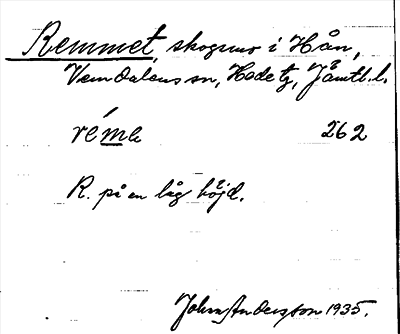 Remmet, skogsmo i Hån,
Vemdalens sn, Hede tg, Jämtl. l.
rém̲e 262
R. på en låg höjd.
John Andersson 1935.